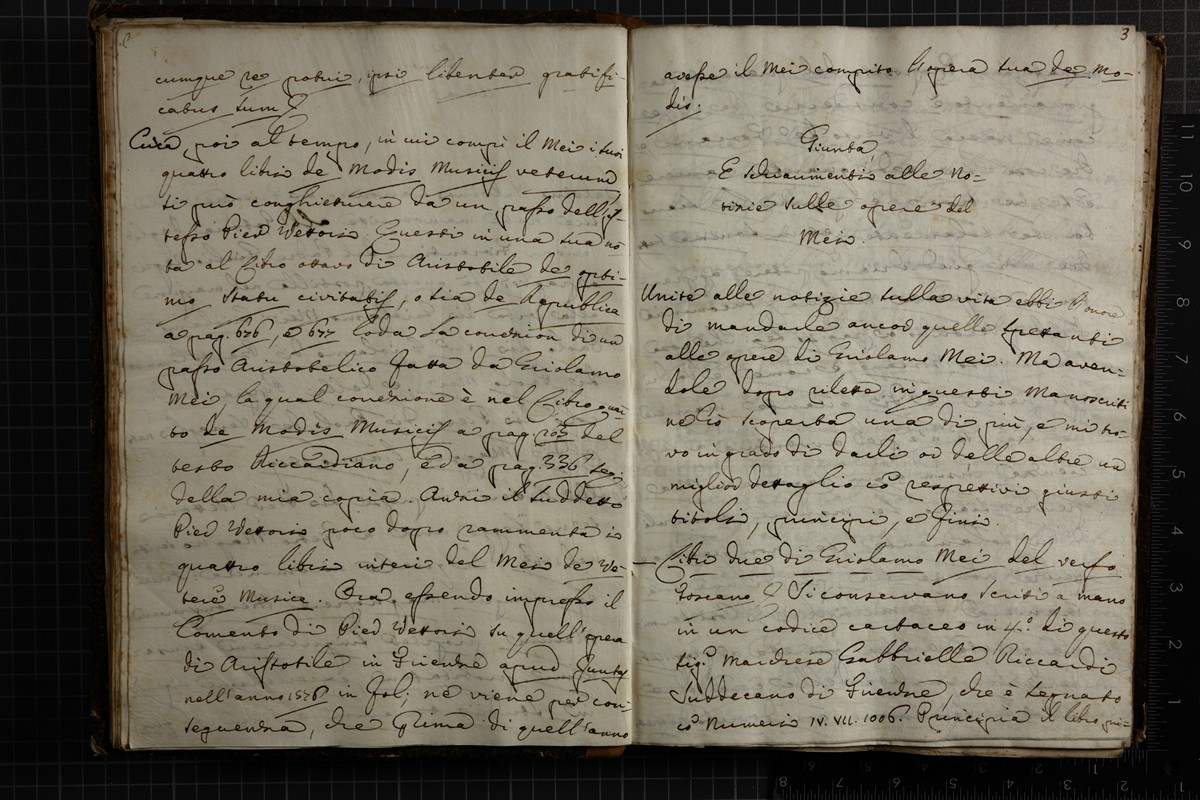 cumque re potui, ipsi libenter gratifi-
catus sum
Circa poi al tempo, in cui compì il Mei i suoi
quattro libri de Modis Musicis veterum
si può conghietturare da un passo dell'is-
tesso Pier Vettori. Questi in una sua no-
ta al Libro ottavo di Aristotile de opti-
mo Statu civitatis, o sia de Republica
a pag. 676, e 677 loda la correzion di un
passo Aristotelico fatta da Girolamo
Mei, la qual correzione è nel Libro quar-
to de Modis Musicis a pag. del
testo Riccardiano, e da pag. 336 seg.
della mia copia. Anzi il suddetto
Pier Vettori poco dopo rammenta i
quattro libri interi del Mei de Ve-
terũ Musice. Ora essendo impresso il
Comento di Pier Vettori su quell'opera
di Aristotile in Firenze apud Juntas
nell'anno 1576 in fol; ne viene per con-
seguenza, che prima di quell'anno
3
avesse il Mei compito l'opera sua de Mo-
dis.
Giunta
E schiarimenti alle No-
tizie sulle opere del
Mei.
Unite alle notizie sulla vita ebbi l'onore
di mandarle ancor quelle spettanti
alle opere di Girolamo Mei. Ma aven-
dole dopo rilette in questi Manoscritti
ne hò scoperta una di più, e mi tro-
vo in grado di darli or delle altre un
miglior dettaglio cõ respettivi giusti
titoli, principi, e fini.
— Libri due di Girolamo Mei del verso
Toscano Si conservano scritti a mano
in un codice cartaceo in 4.º di questo
Sig.r Marchese Gabbrielle Riccardi
Suddecano di Firenze, che è segnato
cõ Numeri IV. VII. 1006. Principia il libro pri-